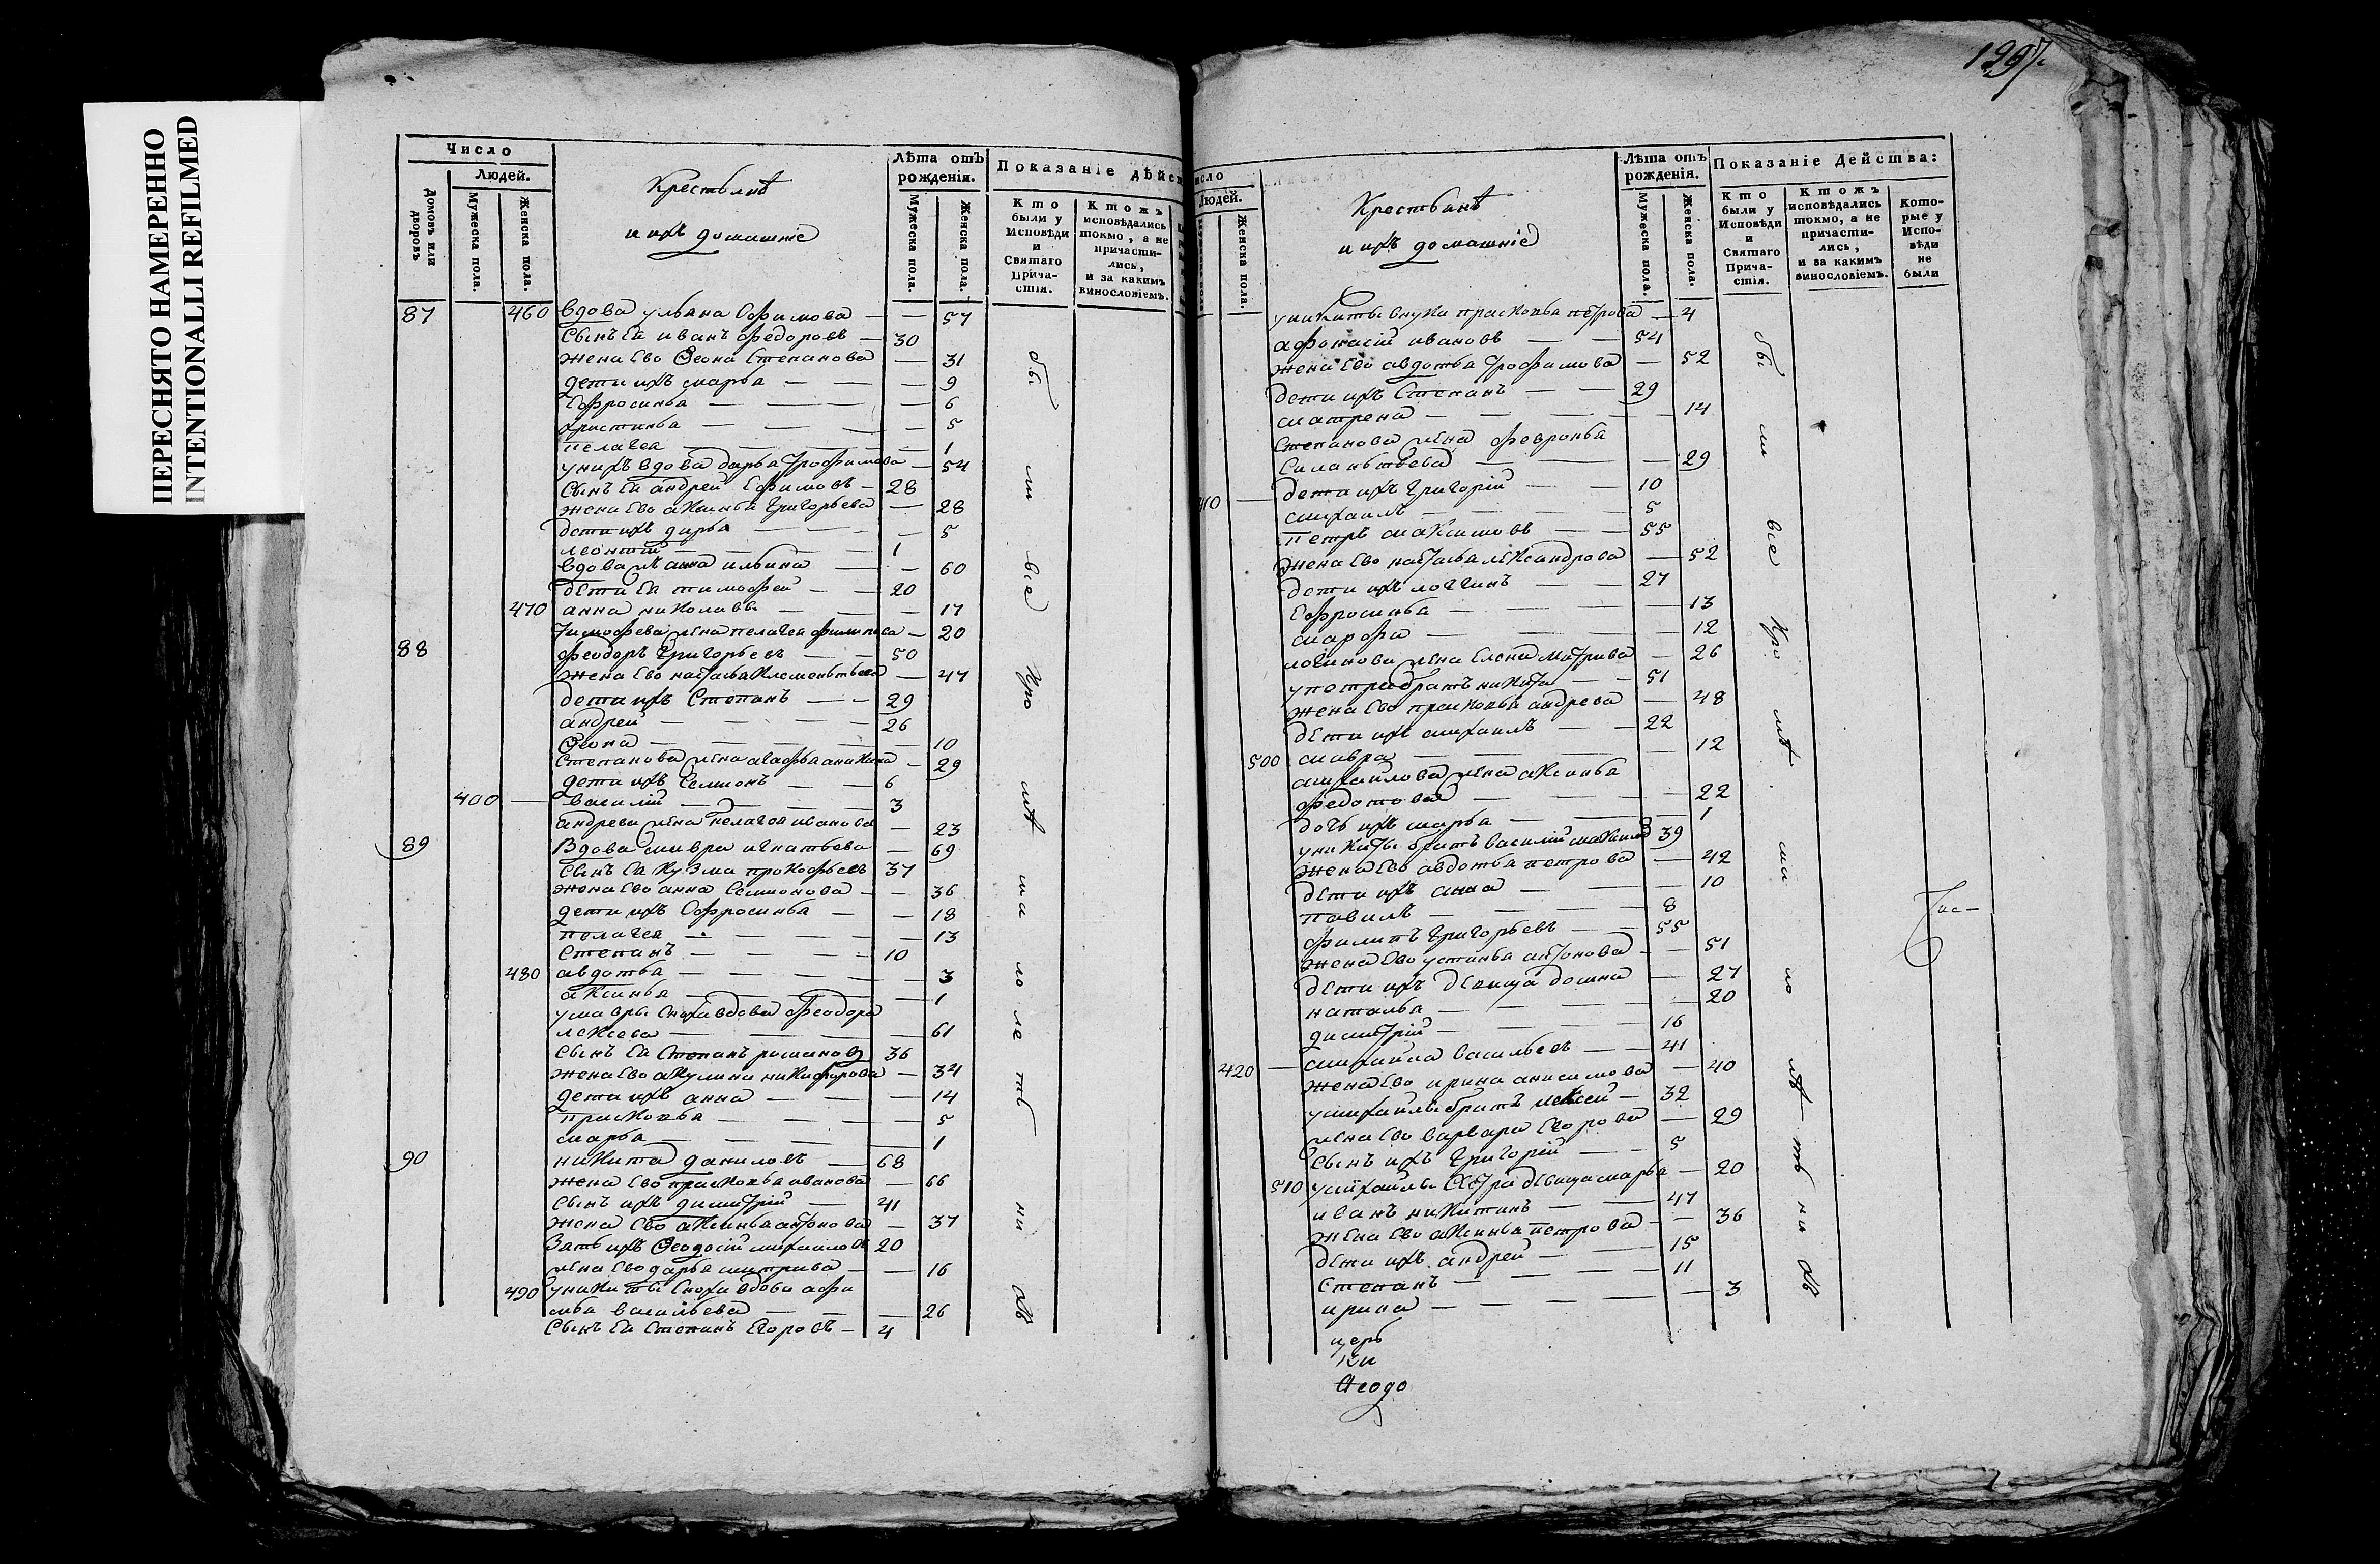 ПЕРЕСНЯТО НАМЕРЕННО
INTENTIONALLI REFILMED
1297.
Число
Людей.
Домовъ или дворовъ
Мужеска пола.
Женска пола.
Крестьянѣ
и ихъ домашніе
Лѣта отъ рожденія.
Мужеска пола.
Женска пола.
Показаніе дѣйст
Кто были у Исповѣди и Святаго Прича-стія.
Ктожъ исповѣдались токмо, а не причасти-лись, и за какимъ винословіемъ.
87 460 вдова ульяна Ефимова — — 57
Сынъ Ея иванъ федоровъ — 30
жена Ево Ѳеона Степанова — 31
дети ихъ марья — — — 9
Ефросинья — — — — 6
христинья — — — — 5
пелагея — — — — 1
унихъ вдова дарья трофимова — 54
Сынъ Ея андрей Ефимовъ — 28
жена Ево аксинья григорьева — 28
дети ихъ дарья — — — 5
леонтій — — — — 1
вдова анна ильина — — 60
дети Ея тимофей — — 20
470 анна — — — 17
Тимофева жена пелагея филипова — 20
88 феодоръ григорьевъ — — 50
жена Ево настасья Клементьева — 47
дети ихъ Степанъ — — 29
андрей — — — — 26
Ѳеона — — — — 10
Степанова жена агафья аникина — 29
дети ихъ Семионъ — — 6
400 — василій — — — 3
андрева жена пелагея иванова — 23
89 Вдова мавра игнатьева — 69
Сынъ Ея Кузма прокофьевъ 37
жена Ево анна Семионова — — 36
дети ихъ Ефросинья — — 18
пелагея — — — — 13
Степанъ — — — — 10
480 авдотья — — — — 3
аксинья — — — — 1
умавры Сноха вдова феодора
лексева — — — — 61
Сынъ Ея Степанъ романовъ 36
жена Ево акулина никифорова — 34
дети ихъ анна — — — 14
прасковья — — — — 5
марья — — — — 1
90 никита даниловъ — 68
жена Ево прасковья иванова — 66
Сынъ ихъ димитрій — 41
жена Ево аксинья антонова — 37
Зять ихъ Ѳеодосій михаиловъ 20
жена Ево дарья митрива — — 16
490 уникиты Сноха вдова афи
мья васильева — — — 26
Сынъ Ея Степанъ Егоровъ — 4
бы
ли
все
кро
мѣ
ма
ло
ле
ть
ни
хъ
исло
Людей.
Женска пола.
Крестьянѣ
и ихъ домашніе
Лѣта отъ рожденія.
Мужеска пола.
Женска пола.
Показаніе Действа:
Кто были у Исповѣди и Святаго Прича-стія.
Ктожъ исповѣдались токмо, а не причасти-лись, и за какимъ винословіемъ.
Кото-рые у Испо-вѣди не были
уникиты внука прасковья петрова — 4
афонасій ивановъ — — 54
жена Ево авдотья трофимова — 52
дети ихъ Степанъ — — 29
матрена — — — — 14
Степанова жена февронья
Силаньтьева — — — 29
410 — дети ихъ григорій — — 10
михаилъ — — — — 5
петръ максимовъ — — 55
жена Ево настасья александрова — 52
дети ихъ логинъ — — 27
Ефросинья — — — — 13
марфа — — — — 12
логинова жена елена митрива — 26
упетра братъ никита — — 51
жена Ево прасковья андрева — 48
дети ихъ михаилъ — — 22
500 мавра — — — — 12
михаилова жена аксинья
федотова — — — — 22
дочь ихъ марья — — — 1
уникиты братъ василій 39
жена Ево авдотья петрова — 42
дети ихъ анна — — — 10
павилъ — — — — 8
филипъ григорьевъ — — 55
жена Ево устинья антонова — 51
дети ихъ девица домна — 27
наталья — — — — 20
димитрій — — — 16
420 — михаила васильевъ — — 41
жена Ево ирина анисимова — 40
умихаилы братъ лексей — 32
жена Ево варвара Егорова — 29
Сынъ ихъ григорій — — 5
510 умихаилы Сестра девица марья — 20
иванъ никитинъ — — 47
жена Ево аксинья петрова — — 36
дети ихъ андрей — — 15
Степанъ — — — — 11
ирина — — — — 3
бы
ли
все
кро
мѣ
ма
ло
лѣ
ть
ни
хъ
церь
ки
Ѳеодо